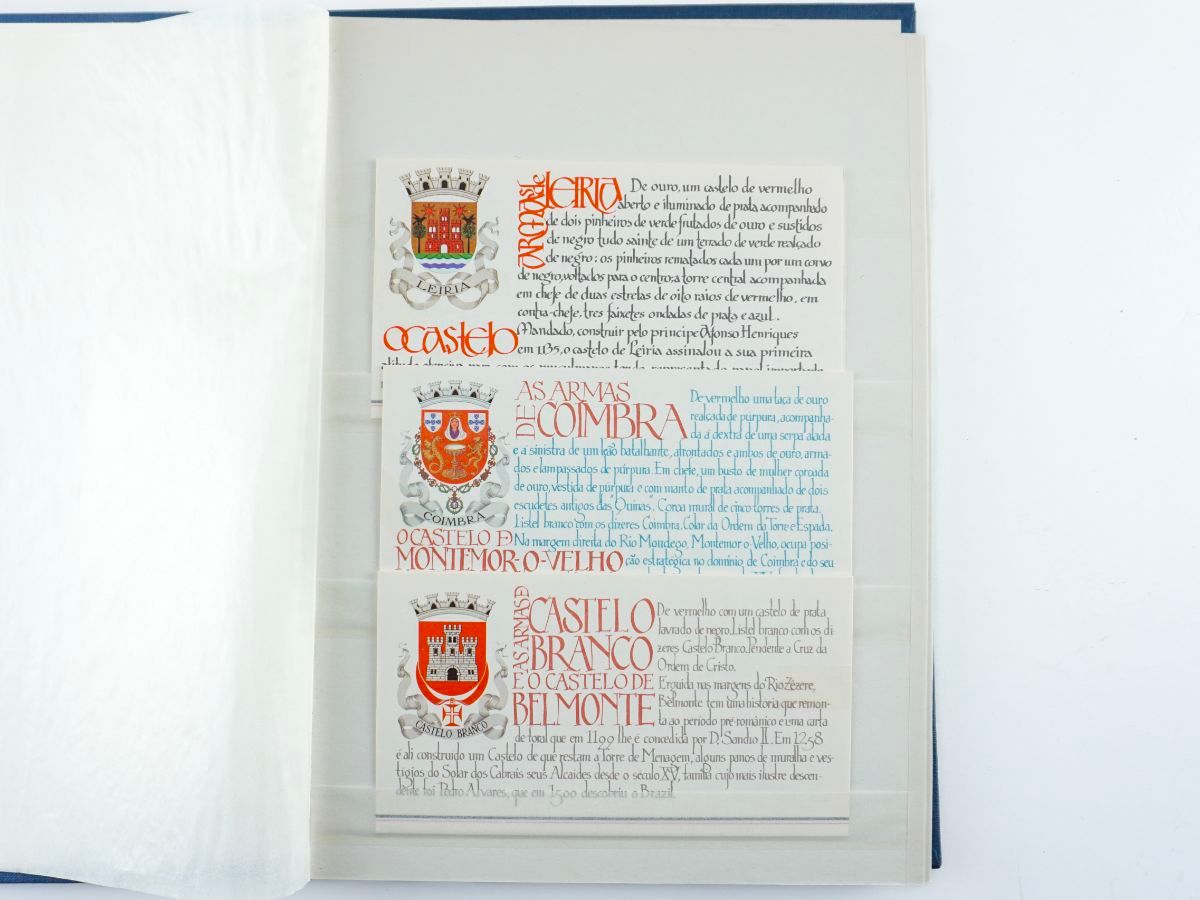 LEIRIA
AS ARMAS de LEIRIA
De ouro, um castelo de vermelho
aberto e iluminado de prata acompanhado
de dois pinheiros de verde frutados de ouro e sustidos
de negro tudo sainte de um terrado de verde realçado
de negro: os pinheiros rematados cada um por um corvo
de negro, voltados para o centro: a torre central acompanhada
em chefe de duas estrelas de oito raios de vermelho, em
contra-chefe, tres faixetes ondadas de prata e azul.
O CASTELO
Mandado, construir pelo principe Afonso Henriques
em 1135, o castelo de Leiria assinalou a sua primeira
COIMBRA
AS ARMAS
DE COIMBRA
De vermelho uma taça de ouro
realçada de púrpura, acompanha-
da á dextra de uma serpa alada
e a sinistra de um leão batalhante, afrontados e ambos de ouro, arma-
dos e lampassados de púrpura. Em chefe, um busto de mulher coroada
de ouro, vestida de púrpura e com manto de prata acompanhado de dois
escudetes antigos das "Quinas". Coroa mural de cinco torres de prata.
Listel branco com os dizeres Coimbra. Colar da Ordem da Torre e Espada.
O CASTELO DE
MONTEMOR-O-VELHO
Na margem direita do Rio Mondego, Montemor-o-Velho, ocupa posi-
ção estrategica no dominio de Coimbra e do seu
CASTELO BRANCO
AS ARMAS DE
CASTELO
BRANCO
E O CASTELO DE
BELMONTE
De vermelho com um castelo de prata
lavrado de negro. Listel branco com os di
zeres Castelo Branco. Pendente a Cruz da
Ordem de Cristo.
Erguida nas margens do Rio Zêzere,
Belmonte tem uma história que remon-
ta ao período pré-românico e uma carta
de foral que em 1199 lhe é concedida por D. Sancho II. Em 1258
é ali construido um Castelo de que restam a Torre de Menagem, alguns panos de muralha e ves-
tígios do Solar dos Cabrais seus Alcaides desde o século XV, família cujo mais ilustre descen-
dente foi Pedro Alvares, que em 1500 descobriu o Brazil.